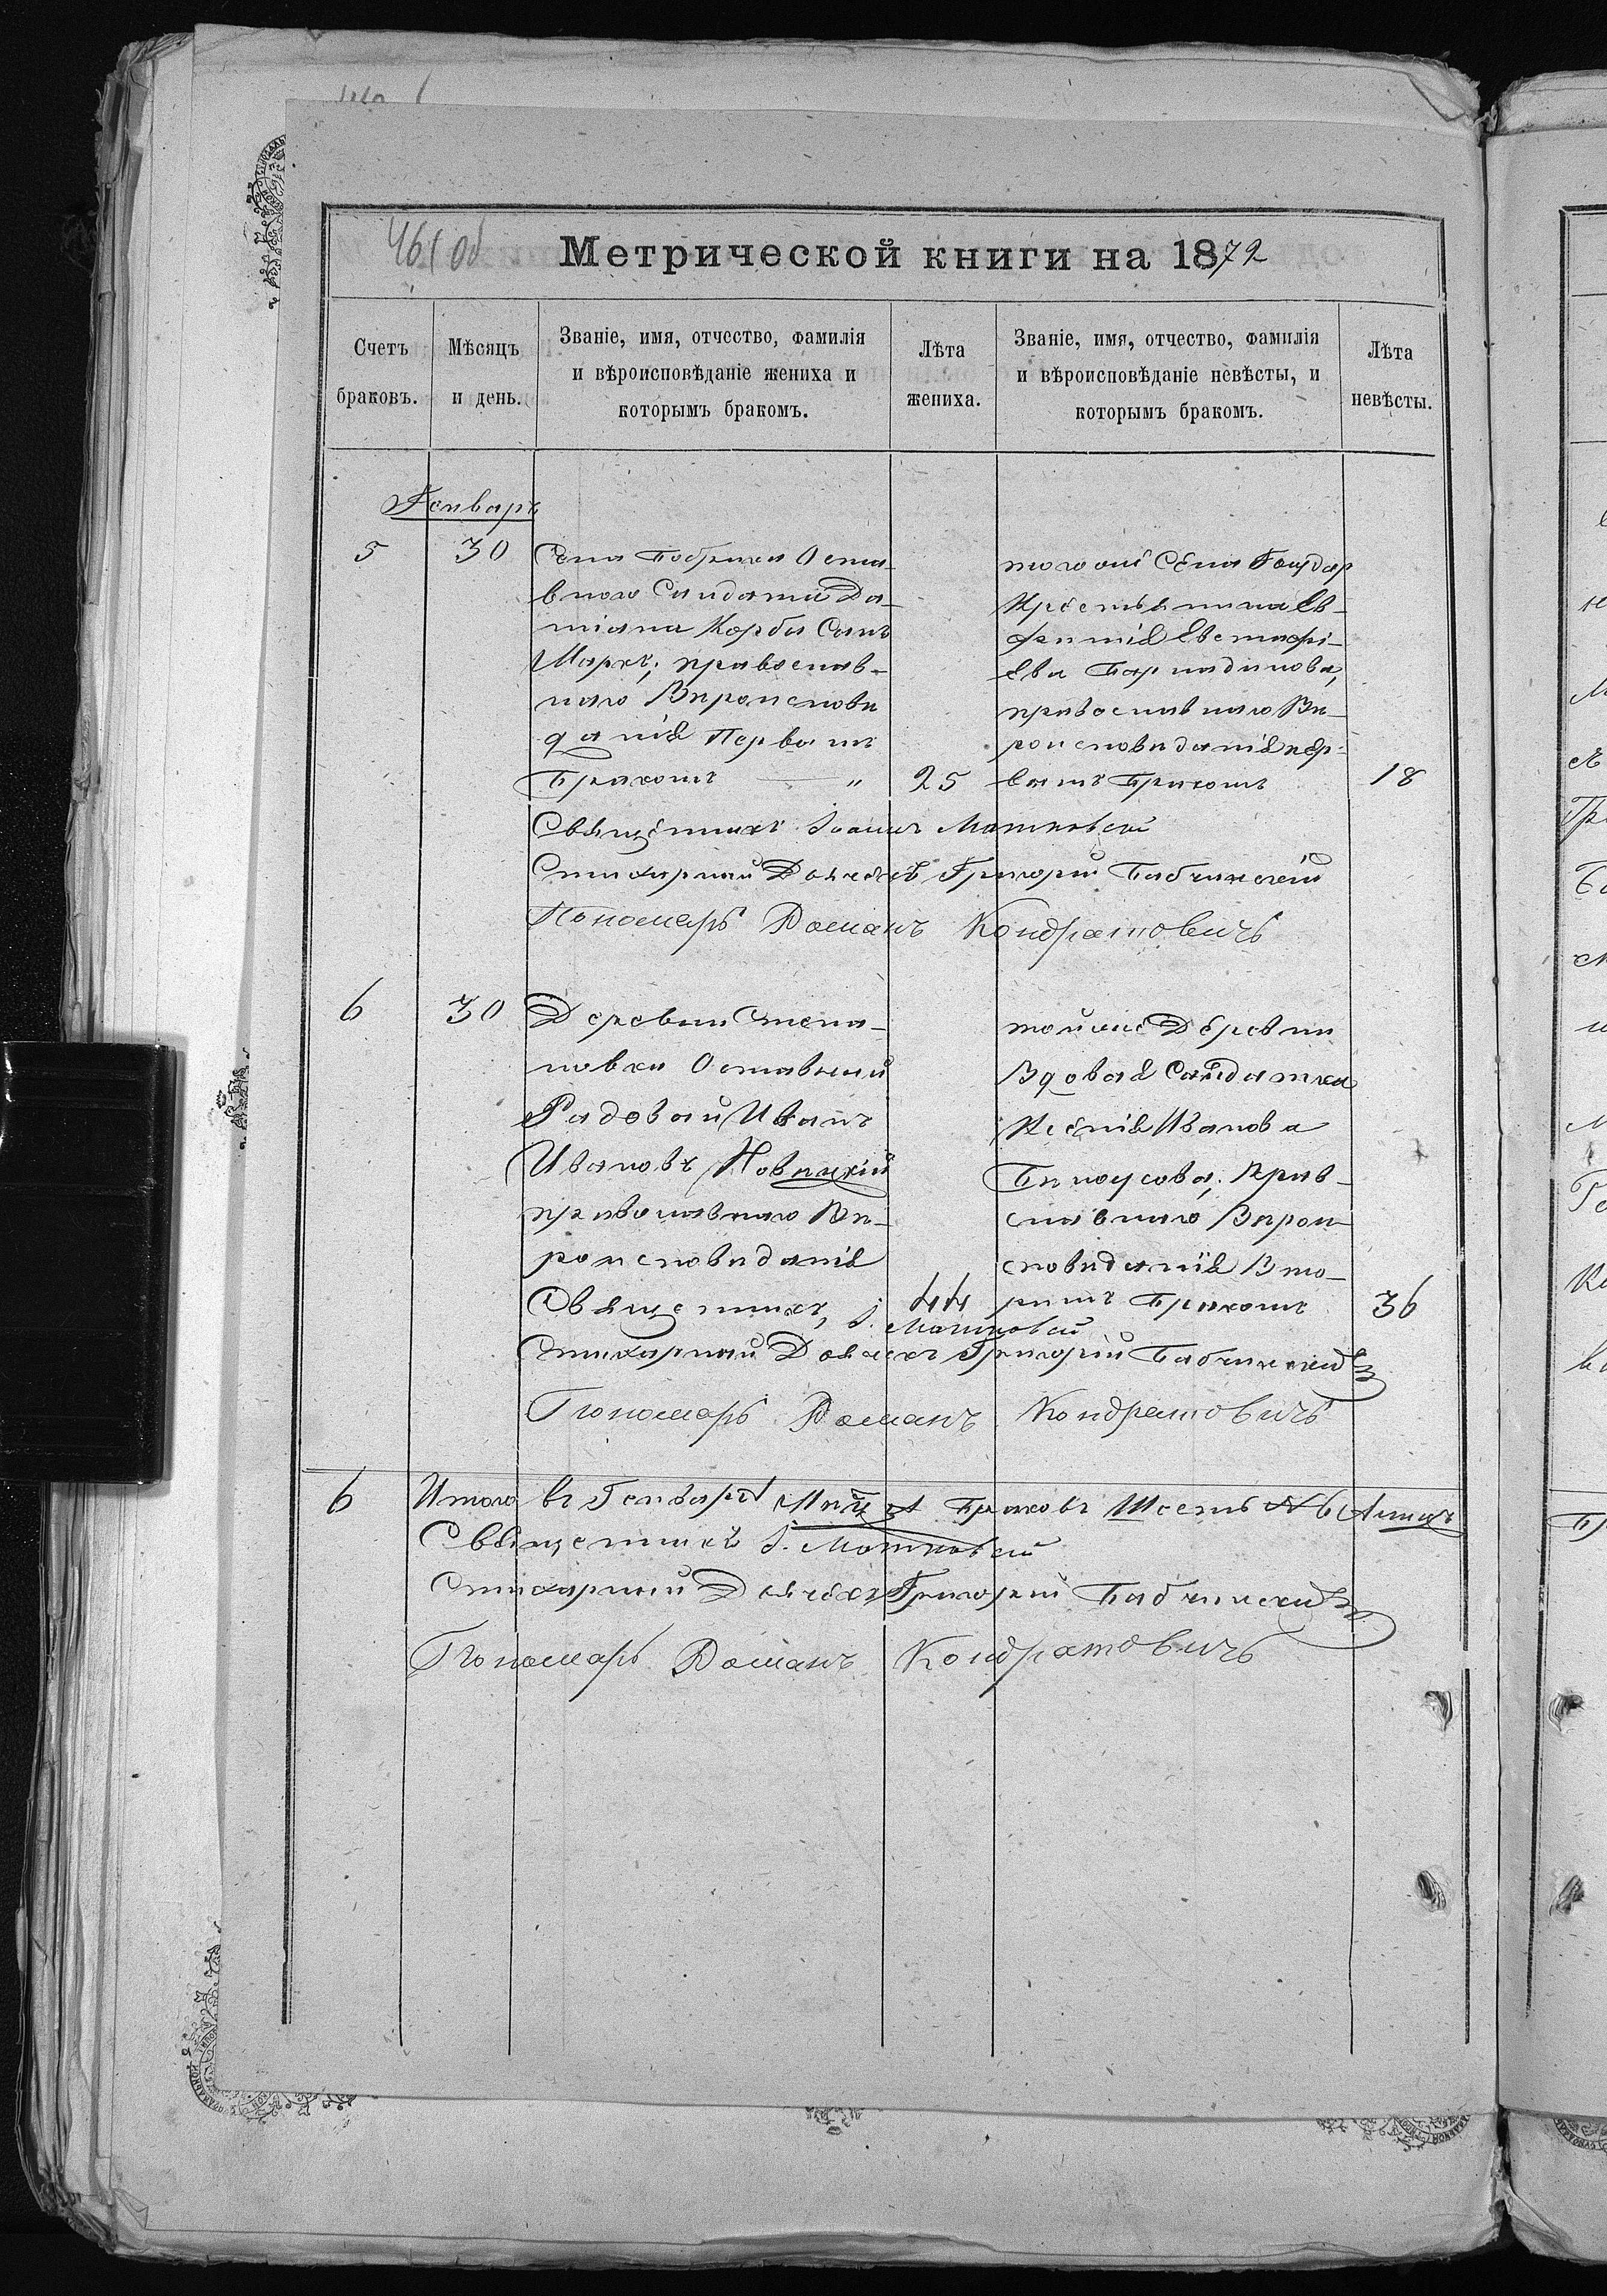 461 об
Метрической книги на 1872
Счетъ браковъ.
Мѣсяцъ и день.
Званіе, имя, отчество, фамилія и вѣроисповѣданіе жениха и которымъ бракомъ.
Лѣта жениха.
Званіе, имя, отчество, фамилія и вѣроисповѣданіе невѣсты, и которымъ бракомъ.
Лѣта невѣсты.
Генваръ
5
30
Села Бобрика Оста-
вного Салдата Да-
міана Корба Сынъ
Маркъ; православ-
наго Вироисповѣ
данія Первымъ
Бракомъ — "
25
тогожъ Села Бондар
Крестьянина Ев-
фимія Евстафі-
ева
православнаго Ви-
роисповиданія пер-
вымъ Бракомъ
18
Священникъ Іоаннъ Матковскій
Стихарный Дьячекъ Григорій Бабчинскій
Пономарь Романъ Кондратовичъ
6
30
Деревни Степа-
новки Оставный
Рядовай Иванъ
Ивановъ Новицкій
православнаго Ви-
роисповиданія
44
тойже Деревни
Вдовая Салдатка
Ксенія Иванова
Билоусова; Прав-
славнаго Вирои-
сповиданія Вто-
римъ Бракомъ
36
Священникъ І. Матковскій
Стихарный Дьячекъ Григорій Бабчинскій
Пономарь Романъ Кондратовичъ
6
Итого въ Генвари Браковъ Шесть № 6
Священникъ І. Матковскій
Стихарный Дьячекъ Григорій Бабчинскій
Пономарь Романъ Кондратовичъ